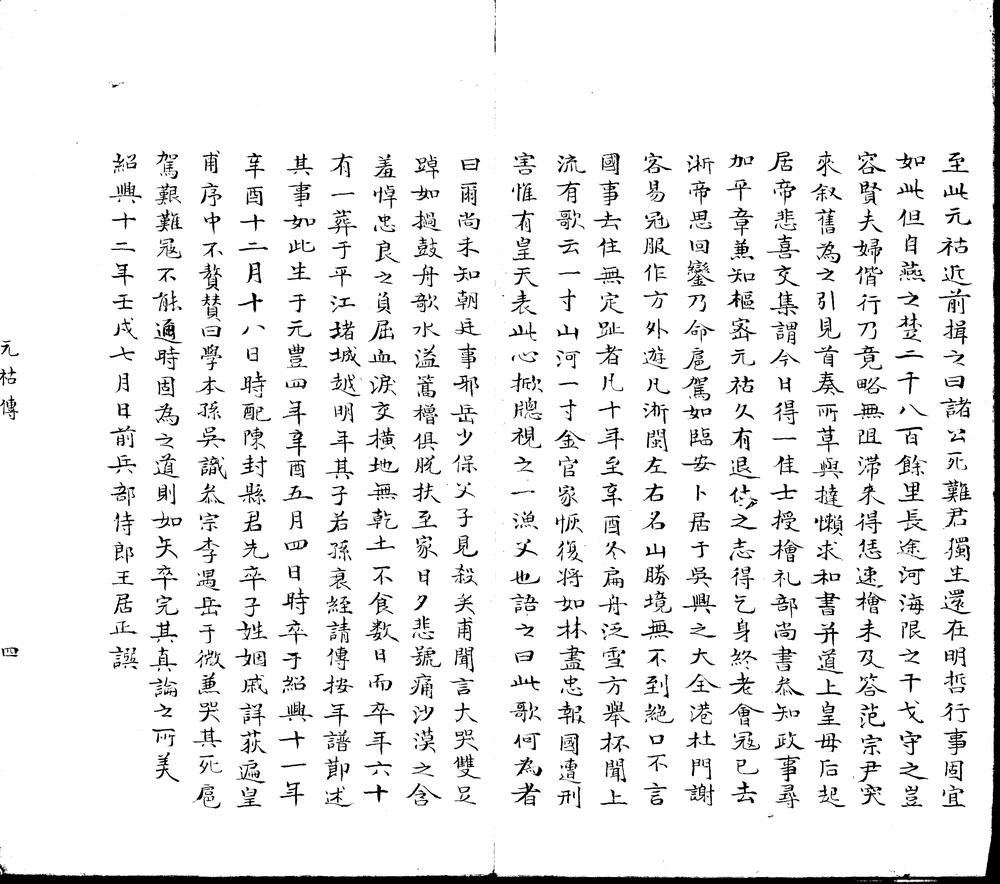 至此元祜近前揖之曰諸公死難君獨生還在明哲行事固宜
如此但自燕之楚二千八百餘里長途河海限之干戈守之豈
容賢夫婦偕行乃竟略無阻滯来得恁速檜未及答范宗尹突
來叙舊為之引見首奏所草與撻懶求和書并道上皇毋后起
居帝悲喜交集謂今日得一佳士授檜礼部尚書叅知政事尋
加平章蒹知樞宻元祜久有退休之志得乞身終老會冦已去
淅帝思回鑾乃命扈駕如臨安卜居于吳興之大全港杜門謝
客易冠服作方外遊凡淅閩左右名山勝境無不到絕口不言
國事去住無定趾者凡十年至辛酉冬扁舟泛雪方舉杯聞上
流有歌云一寸山河一寸金官家恢復将如林盡忠報國遭刑
害惟有皇天表此心掀牕視之一漁父也語之曰此歌何為者
曰爾尚未知朝廷事邪岳少保父子見殺矣甫聞言大哭雙足
踔如撾鼓舟歌水溢蒿櫓俱脫扶至家日夕悲號痛沙漠之含
羞悼忠良之負屈血淚交橫地無乾土不食数日而卒年六十
有一葬于平江堵城越明年其子若孫衰絰請傳按年譜節述
其事如此生于元豐四年辛酉五月四日時卒于紹興十一年
辛酉十二月十八日時配陳封縣君先卒子姓姻戚詳荻遍皇
甫序中不贅賛曰學本孫吳識叅宗李遇岳于微蒹哭其死扈
駕艱難冦不能逼時固為之道則如矢卒完其真論之所美
紹興十二年壬戌七月日前兵部侍郎王居正譔
元祜傳
四